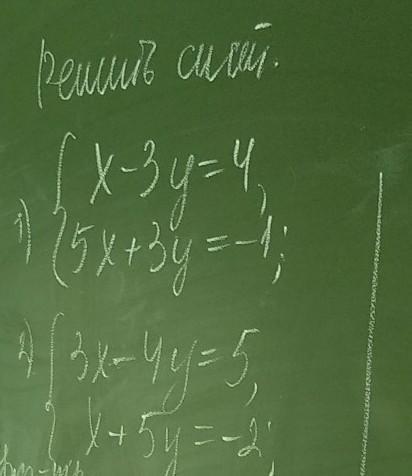 Решить сист.
1) { x-3y=4,
5x+3y=-1;
2) { 3x-4y=5,
x+5y=-2;